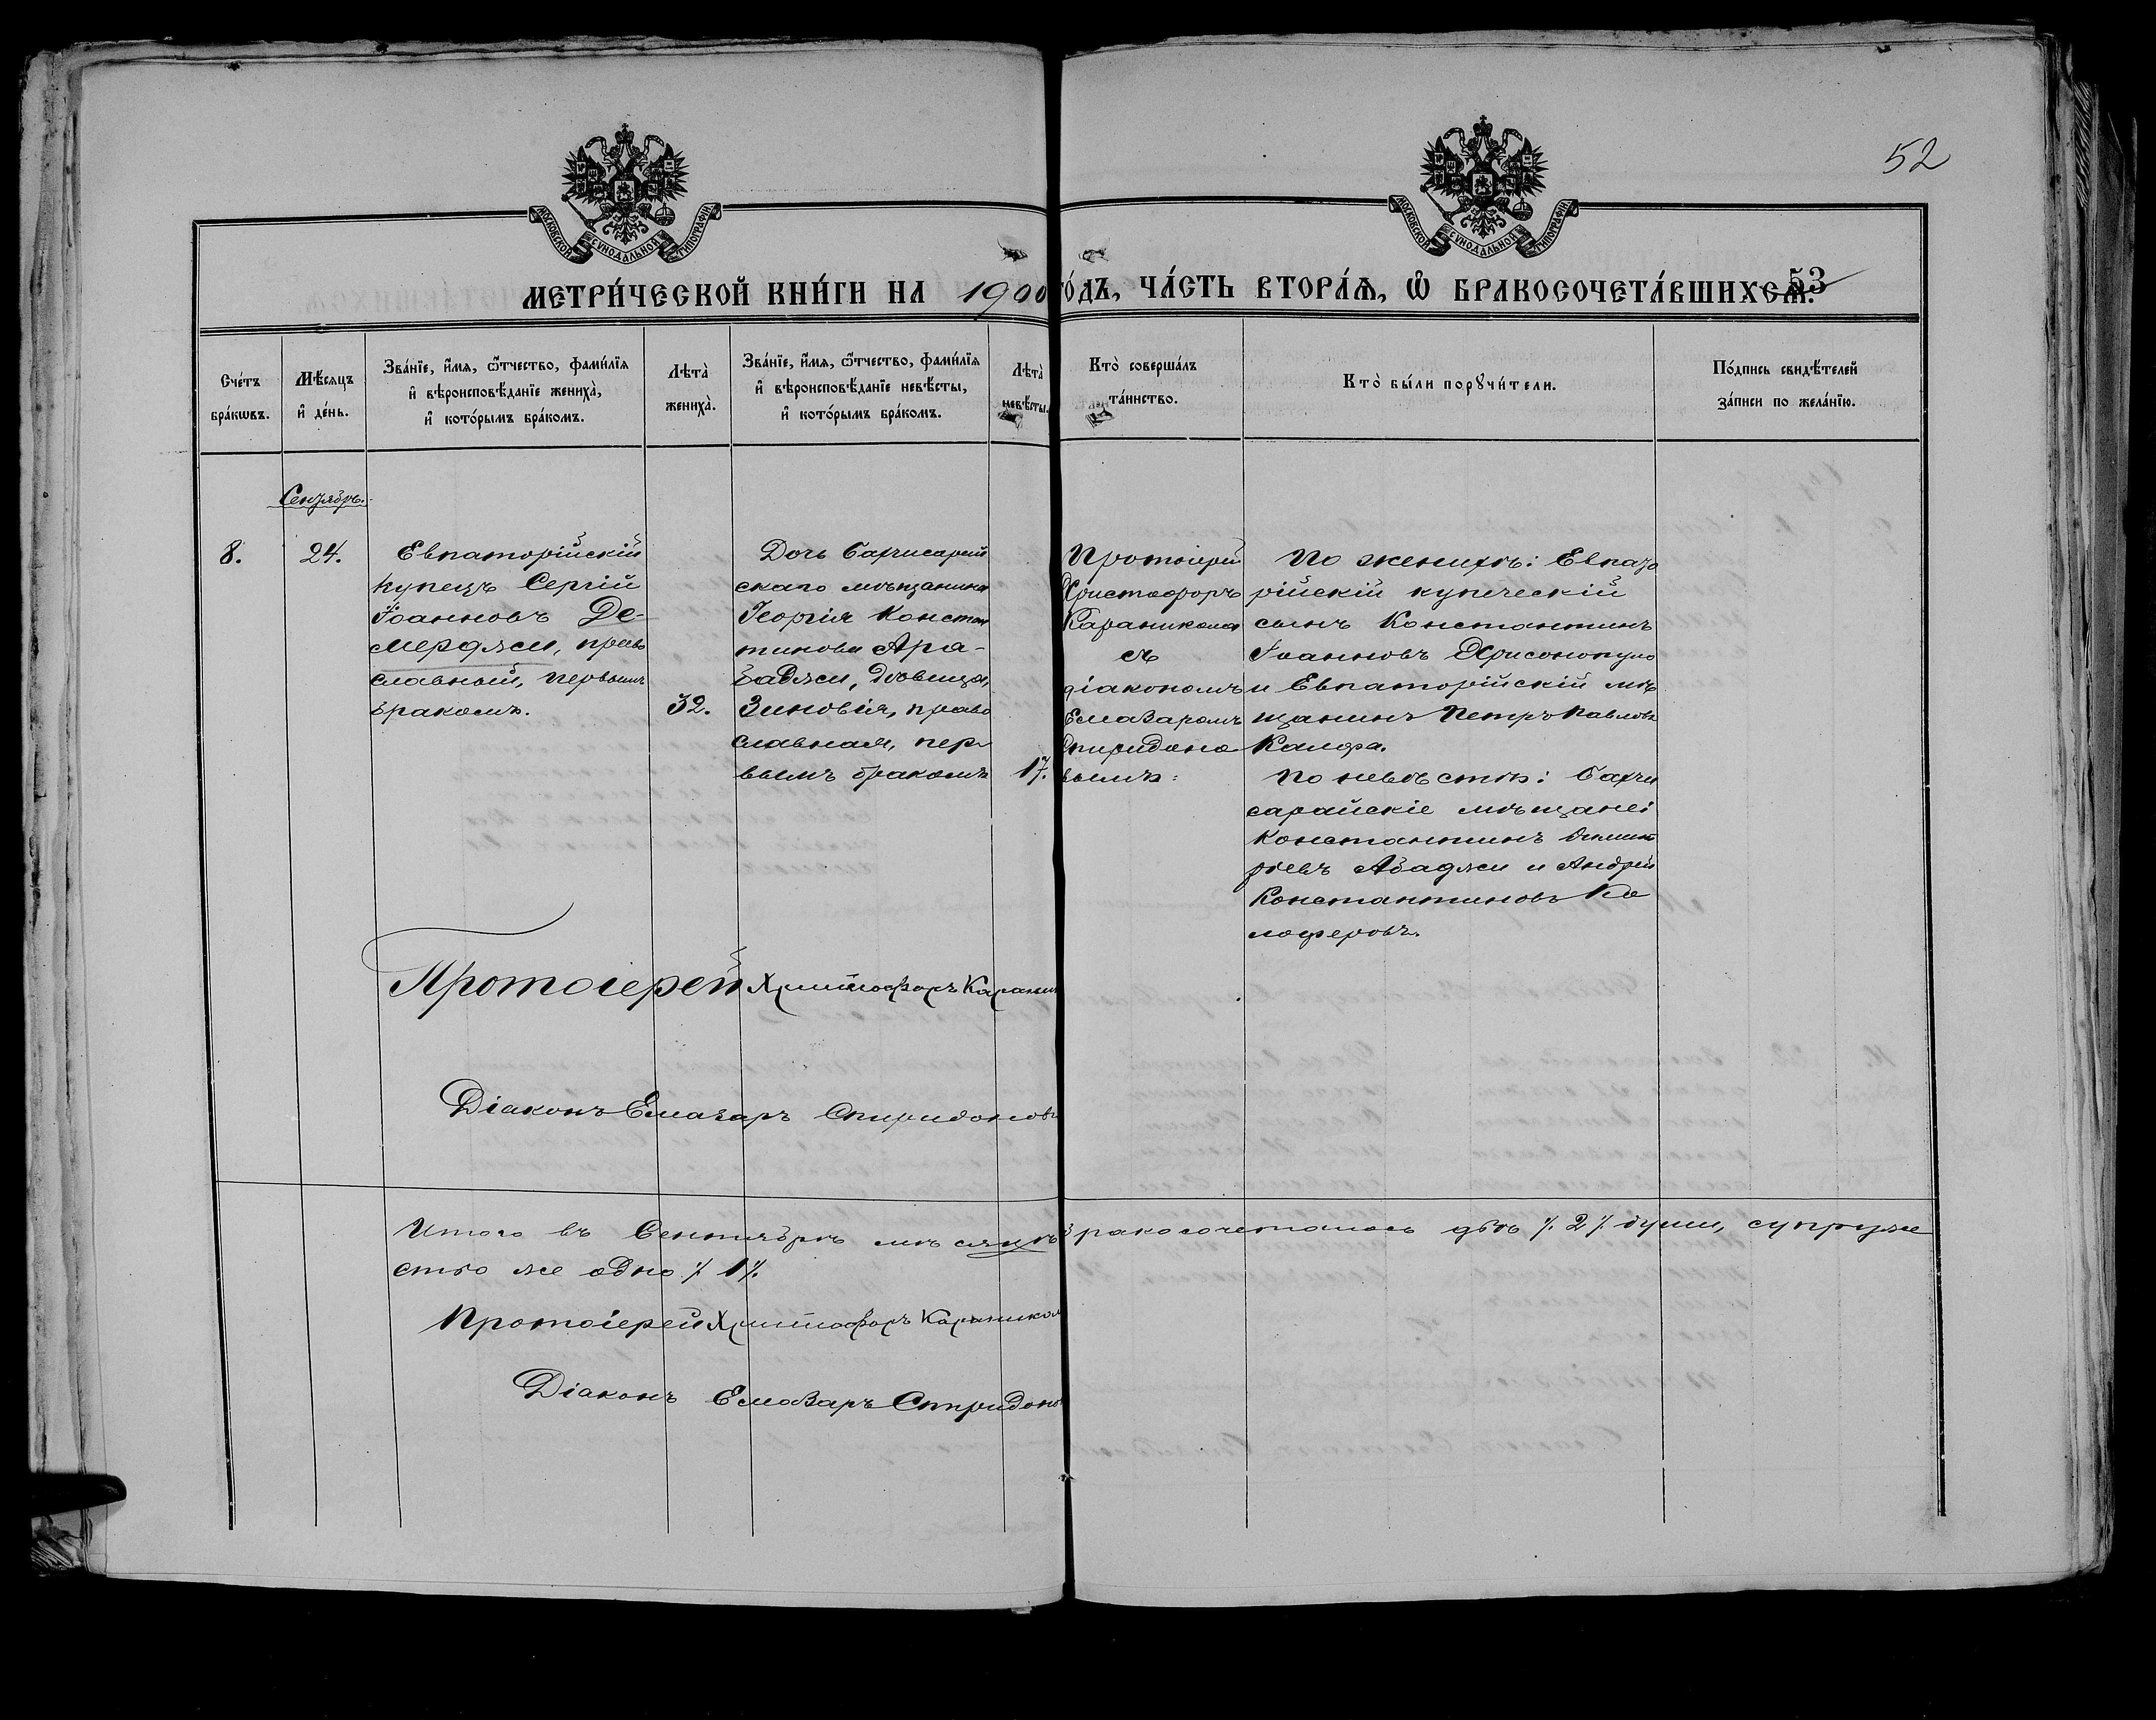 52
МОСКОВСКОЙ СѴНОДАЛЬНОЙ ТИПОГРАФІИ
МОСКОВСКОЙ СѴНОДАЛЬНОЙ ТИПОГРАФІИ
МЕТРИ́ЧЕСКОЙ КНИ́ГИ НА 1900 ГО́ДЪ, ЧА́СТЬ ВТОРА́Ѧ, Ѽ БРАКОСОЧЕТА́ВШИХСѦ.
53
Сче́тъ бра́кѡвъ.
Мѣ́сяцъ и҆ де́нь.
Зва́нїе, и҆́мя, ѻ҆́тчество, фами́лїя
и҆ вѣроисповѣ́данїе жениха̀,
и҆ кото́рымъ бра́комъ.
Лѣта̀ жениха̀.
Зва́нїе, и҆́мя, ѻ҆́тчество, фами́лїя
и҆ вѣроисповѣ́данїе невѣ́сты,
и҆ кото́рымъ бра́комъ.
Лѣта̀ невѣ́сты.
Кто̀ соверша́лъ
та́инство.
Кто̀ бы́ли порꙋчи́тели.
По́дпись свидѣ́телей
за́писи по жела́нїю.
Сентябрь.
8.
24.
Евпаторійскій
купецъ Сергій
Іоанновъ Де-
мерджи, право
славный, первымъ
бракомъ.
32.
Дочь Бахчисарай
скаго мѣщанина
Георгія Констан
тинова Ара-
баджи, дѣвица,
Зиновія, право
славная, пер
вымъ бракомъ
17.
Протоіерей
Христофоръ
Караникола
съ
діакономъ
Елеазаромъ
Спиридоно
вымъ.
По женихѣ: Евпато
рійскій купеческій
сынъ Константинъ
Іоанновъ Хрисонопуло
и Евпаторійскій мѣ
щанинъ Петръ Павловъ
Калфа.
По невѣстѣ: Бахчи
сарайскіе мѣщане:
Константинъ Димит
ріевъ Абаджи и Андрей
Константиновъ Ка
лоферовъ.
Протоіерей Христофоръ Караник
Діаконъ Елеазаръ Спиридоновъ
Итого въ Сентябрѣ мѣсяцѣ бракосочеталось двѣ ٪ 2 ٪ души, супруже
ство же одно ٪ 1 ٪.
Протоіерей Христофоръ Караникол
Діаконъ Елеазаръ Спиридонов